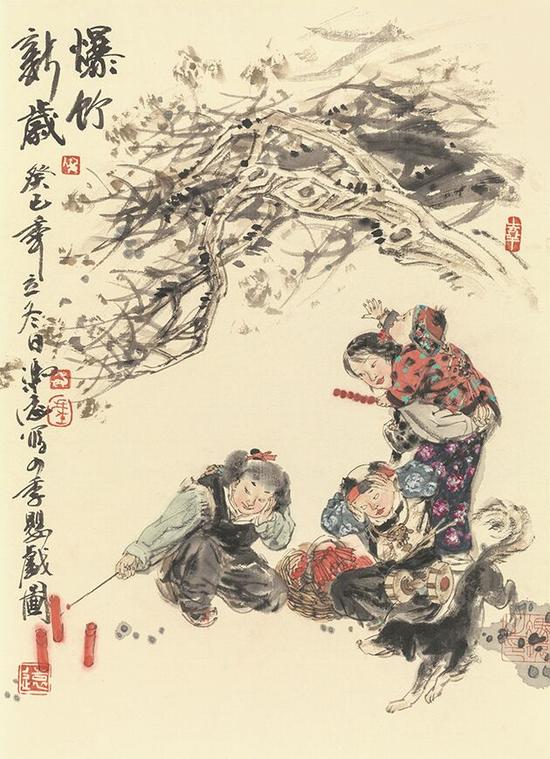 爆竹
新歲
癸巳年立冬日寫四季嬰戲圖